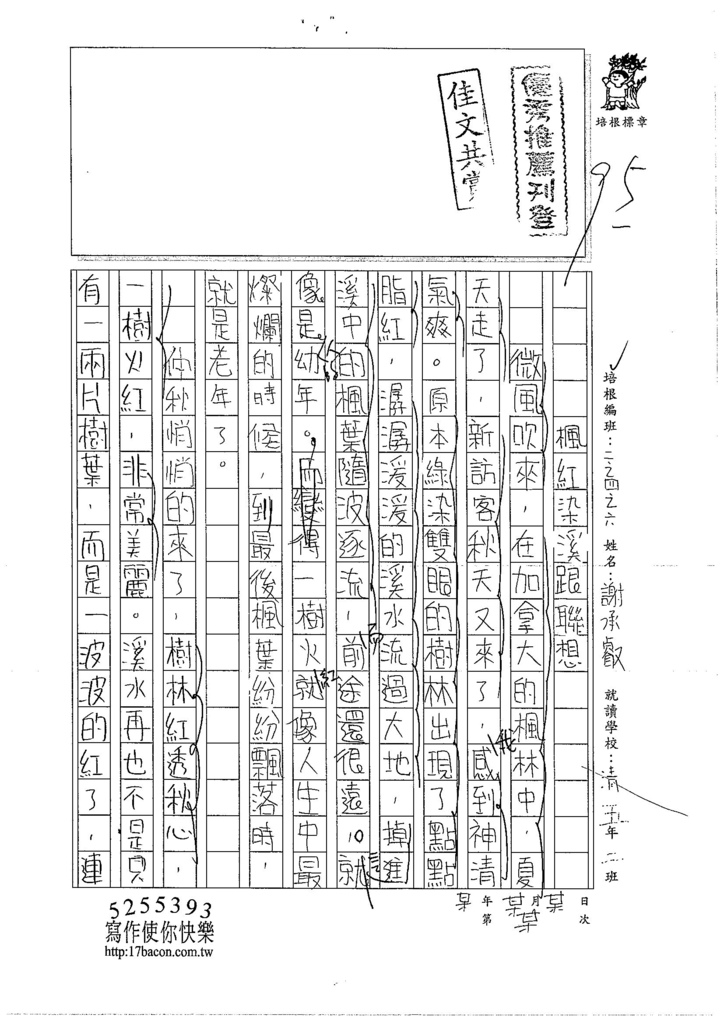 培根標章
優秀推薦刊登
佳文共賞
95
培根編班：二之四之六 姓名：謝承叡 就讀學校：清 五年二班
某年某月某日
第某次
楓紅染溪跟聯想
微風吹來，在加拿大的楓林中，夏
天走了，新訪客秋天又來了，我感到神清
氣爽。原本綠染雙眼的樹林出現了點點
脂紅，潺潺湲湲的溪水流過大地，掉進
溪中的楓葉隨波逐流，而前途還很遠，就
像是幼年。而變得一樹火紅就像人生中最
燦爛的時候，到最後楓葉紛紛飄落時，
就是老年了。
仲秋悄悄的來了，樹林紅透秋心，
一樹火紅，非常美麗。溪水再也不是只
有一兩片樹葉，而是一波波的紅了，連
5255393
寫作使你快樂
http:17bacon.com.tw